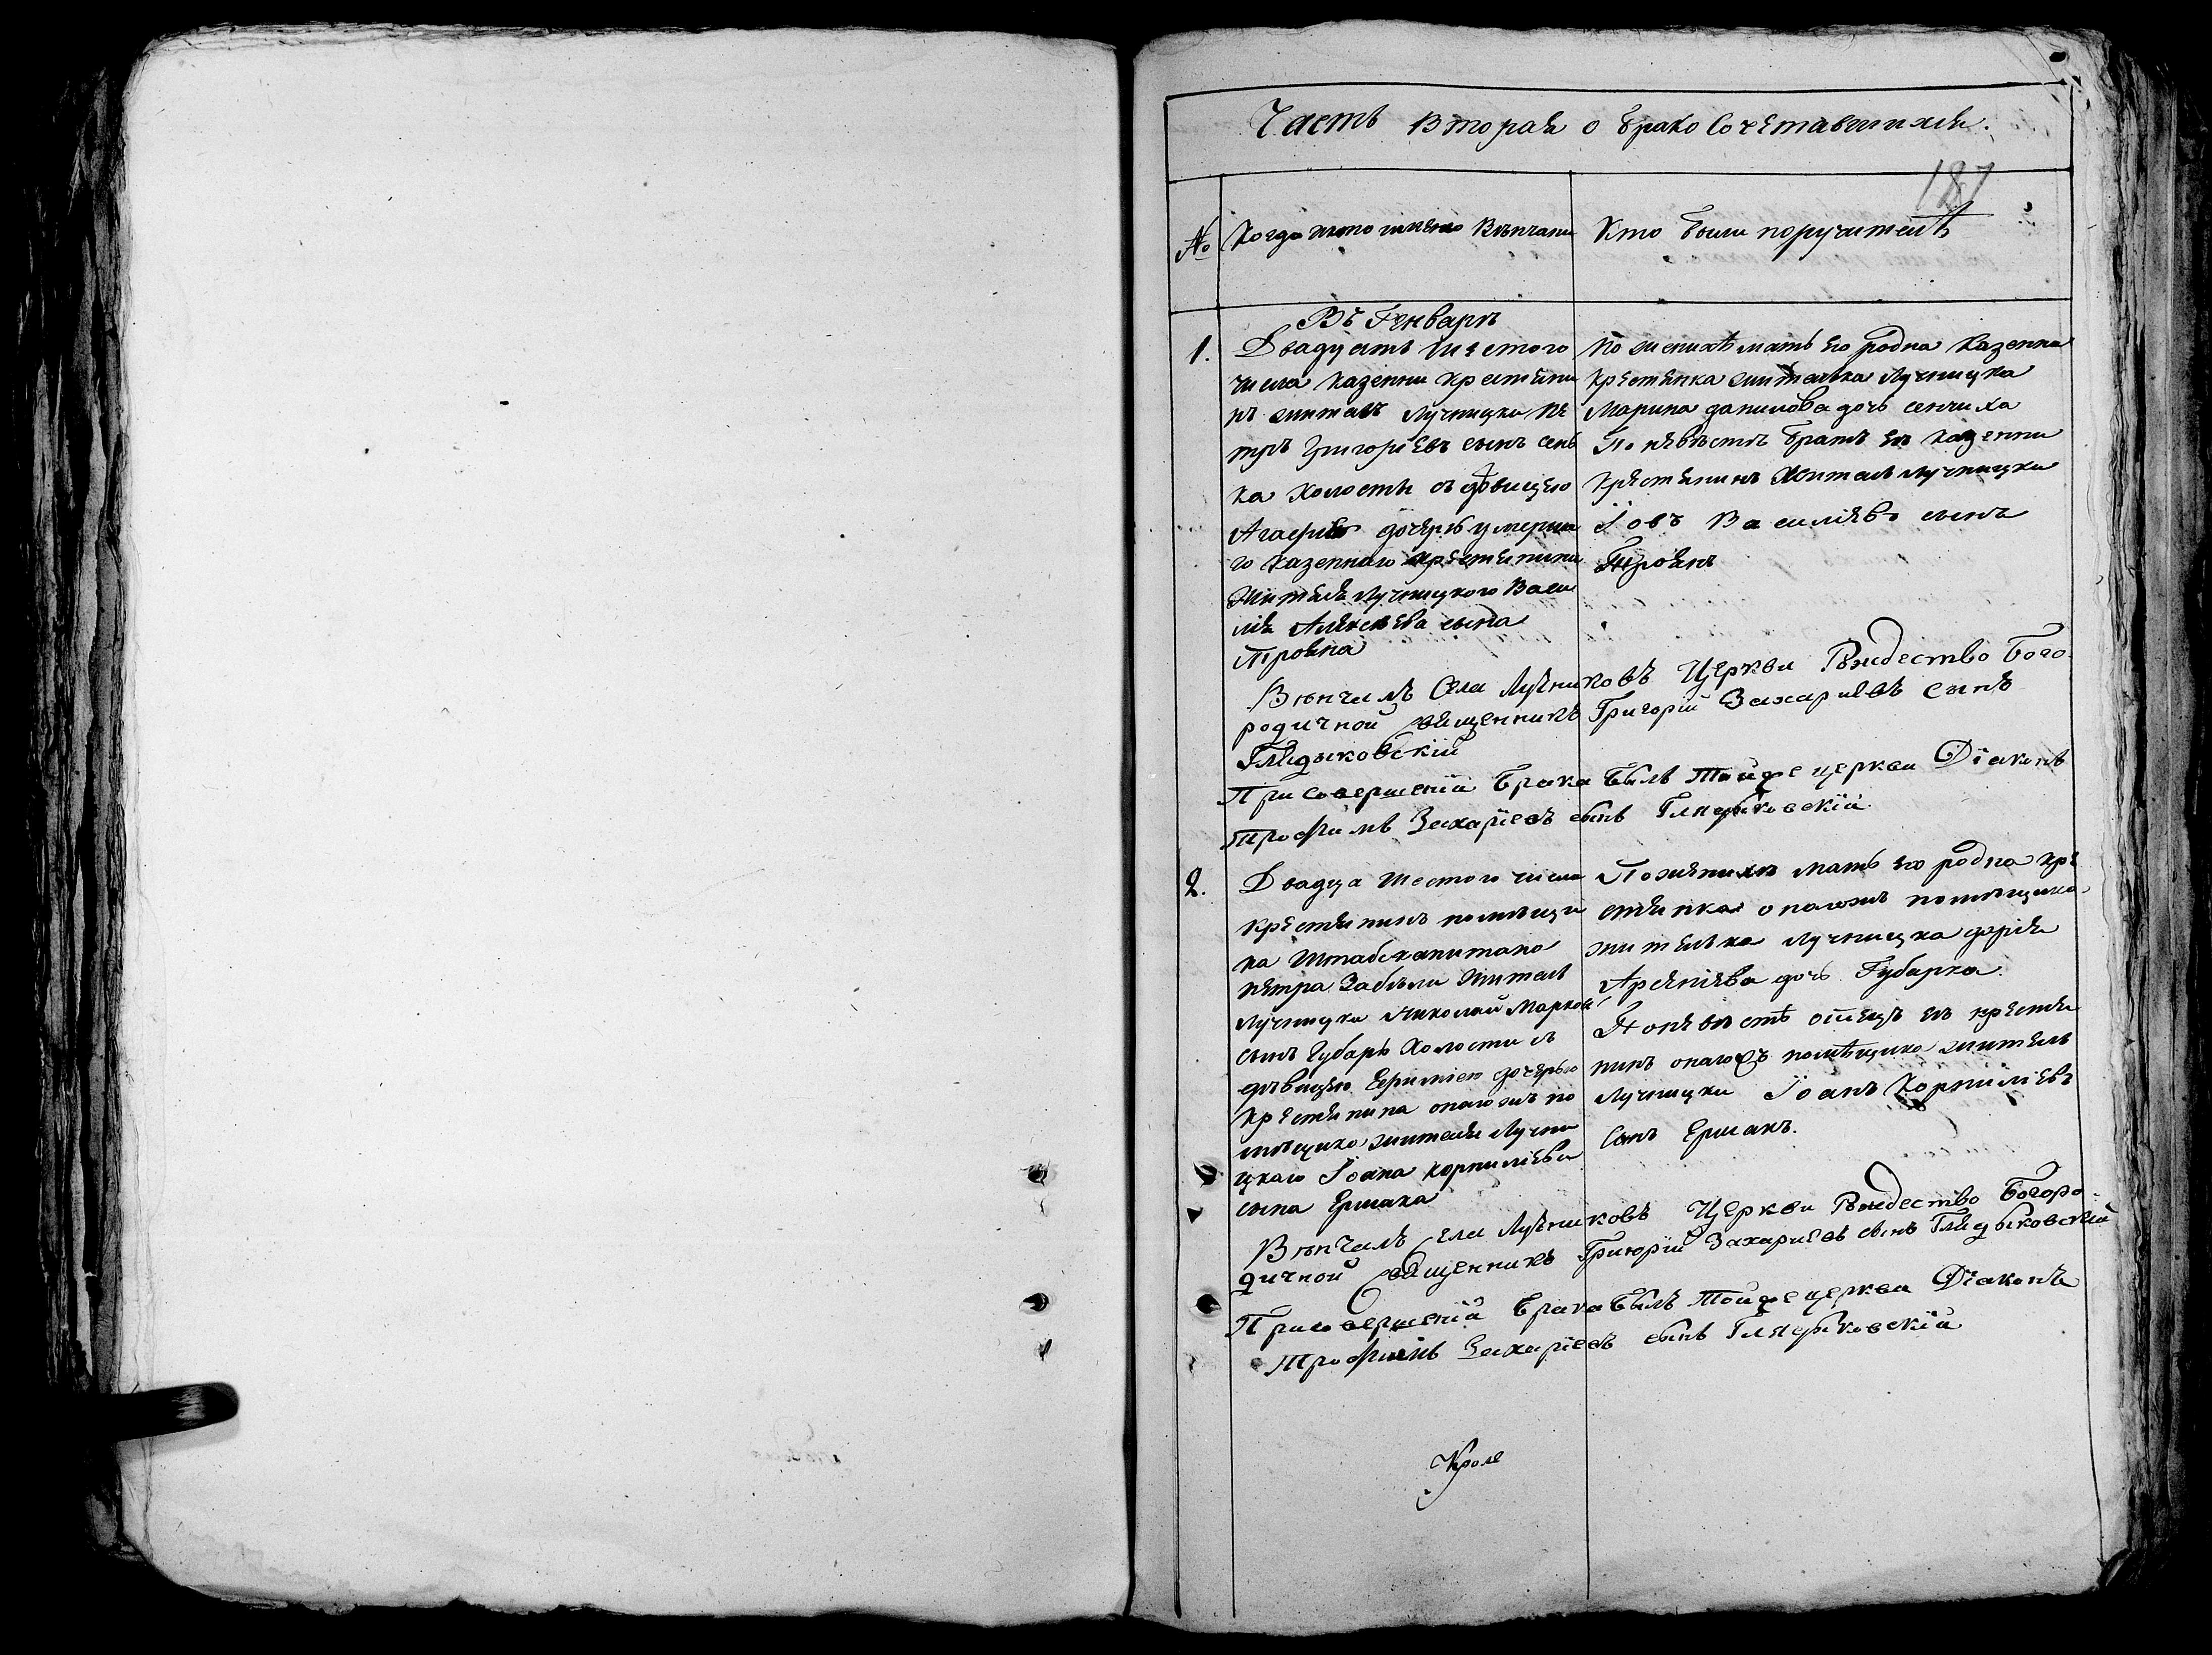 Часть Вторая о бракосочетавшихся.
187
№ Когда и кто имено Венчаны
Кто были поручителѣ
Въ Генварѣ
1. Двадцать шестого
числа казенни крестяни
нъ житель Лучницки Пе
тръ Григоріевъ сынъ Сень
ка холосты съ дѣвицею
Агафию дочерь умерша
го казенного крестянина
Жителя Лучницкого Васи
лія Алексѣева сына
Трояна
По женихѣ мать его родна казенна
крестянка жителька Лучницка
Марина данилова дочь сенчиха
По невѣстѣ братъ ея казенни
крестянинъ Житель лучницки
Іовъ Василіевъ сынъ
Троянъ
Вѣнчалъ Села Лучниковъ Церкви Рождество Бого
родичной священникъ Григорій Захаріевъ сынъ
Глядыковскій
При совершеніи брака былъ тойже церкви Діаконъ
Трофимъ Захаріевъ сынъ Глядыковскій
2. Двадца шестого числа
крестянинъ помѣщи
ка Штабскапитана
Петра Забѣлы Житель
Лучницки Николай Марков
сынъ Губарь Холости съ
дѣвицею Евфиміею дочерью
крестянина онагожъ по
мѣщика жителя Лучни
цкаго Іоана Корниліева
сына Ермака
По женихѣ мать его родна кре
стянка онагожъ помѣщика
жителька Лучницка дарія
Арсеніева дочь Губарка
По невѣстѣ отецъ ея крестя
нинъ онагожъ помѣщика житель
Лучницки Іоанъ Корниліевъ
Сынъ Ермакъ.
Вѣнчалъ Села Лучниковъ Церкви Рождество Богоро
дичной Священникъ Григорій Захаріевъ сынъ Глядыковскій
При совершеніи брака былъ тойже церкви Діаконъ
Трофимъ Захаріевъ сынъ Глядыковскій